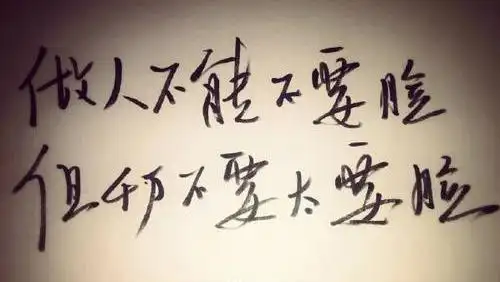 做人不能不要脸
但切不要太要脸